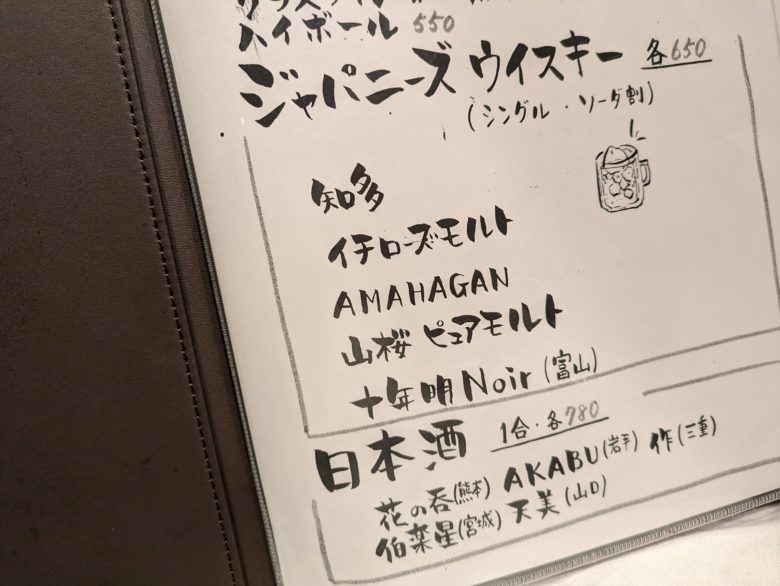 ハイボール 550
ジャパニーズ ウイスキー 各650
(シングル・ソーダ割)
知多
イチローズモルト
AMAHAGAN
山桜 ピュアモルト
十年明 Noir (富山)
日本酒 1合・各780
花の香(熊本) AKABU(岩手) 作(三重)
伯楽星(宮城) 天美(山口)